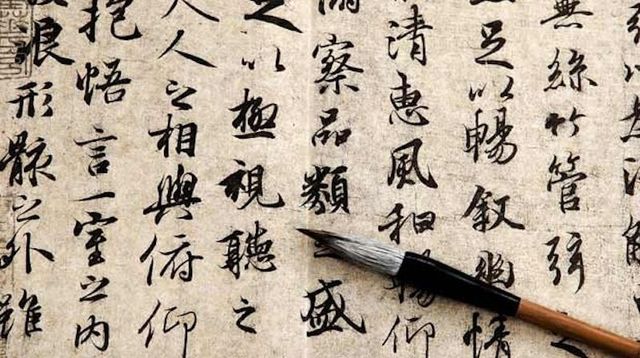 以為流觴
無絲竹管弦之
足以暢敘幽情
清惠風和暢仰
察品類之盛
足以極視聽之
夫人之相與俯仰
抱悟言一室之内
浪形骸之外雖